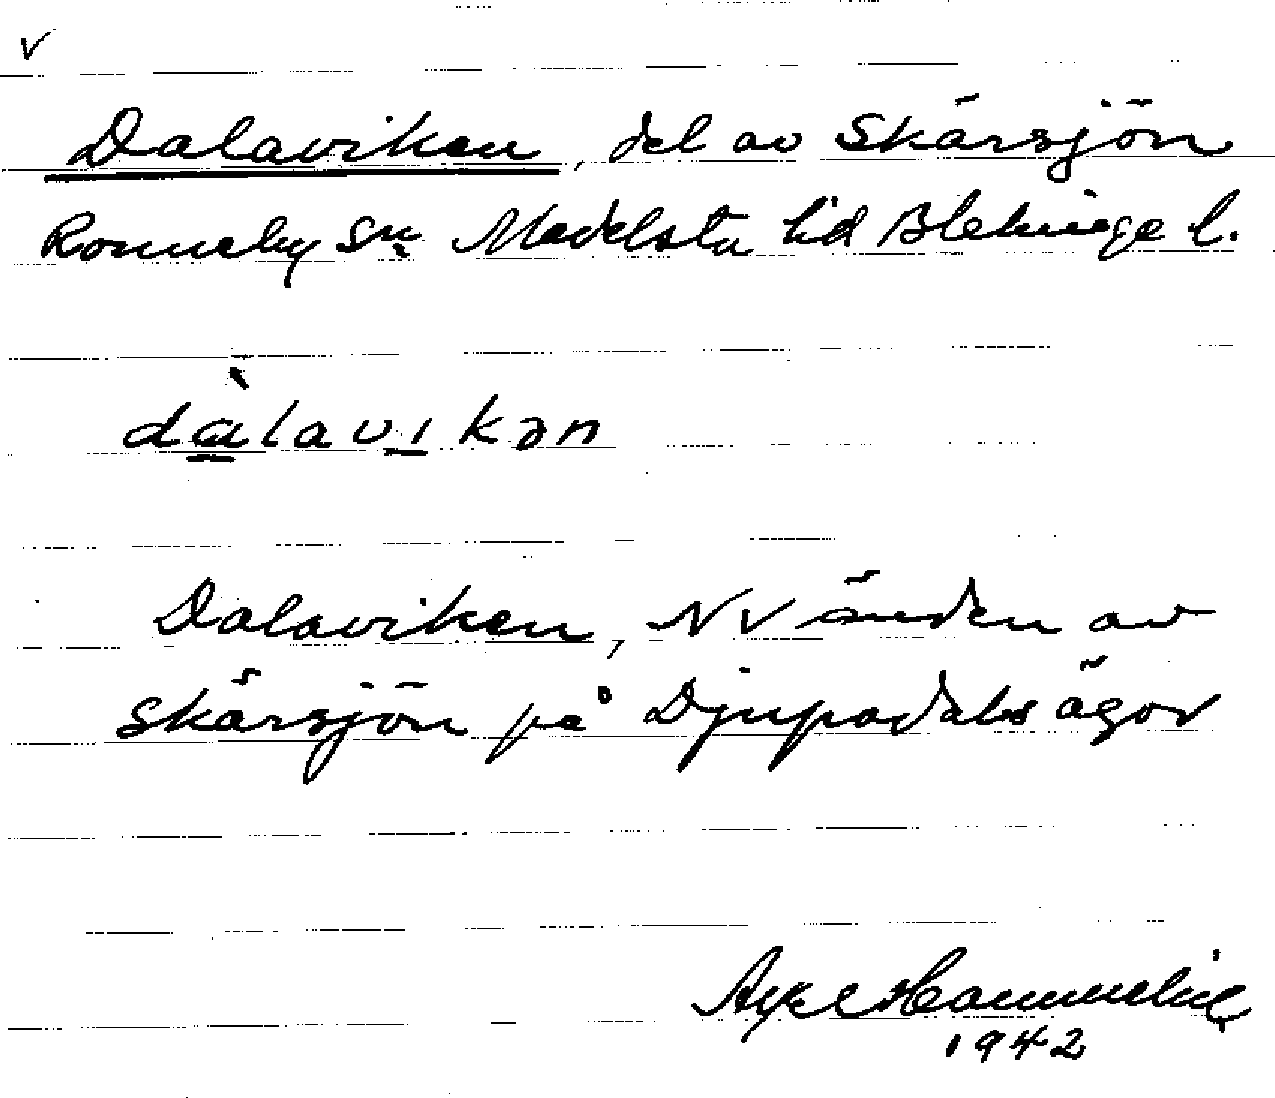 v
Dalaviken, del av Skärsjön
Ronneby sn Medelsta hd Blekinge l.
dàlavikən
Dalaviken, NV änden av
Skärsjön på Djupadals ägor
Axel
1942